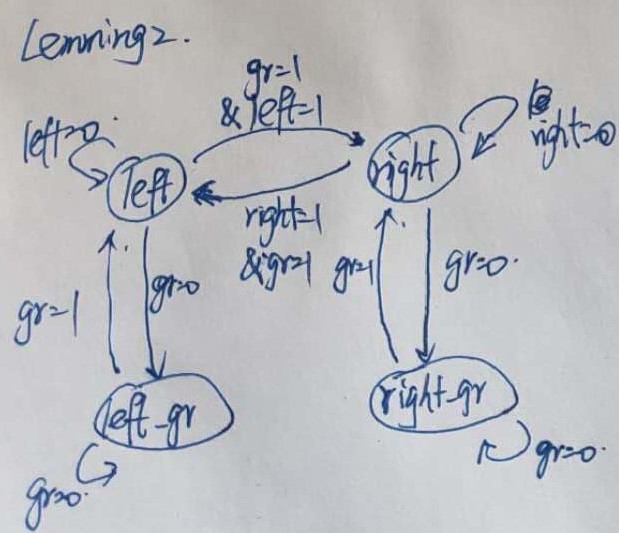 Lemming2.
gr=1
& left=1
left=0
left
right
right=0
right=1
& gr=1
gr=1
gr=0
gr=1
gr=0.
left-gr
right-gr
gr=0.
gr=0.